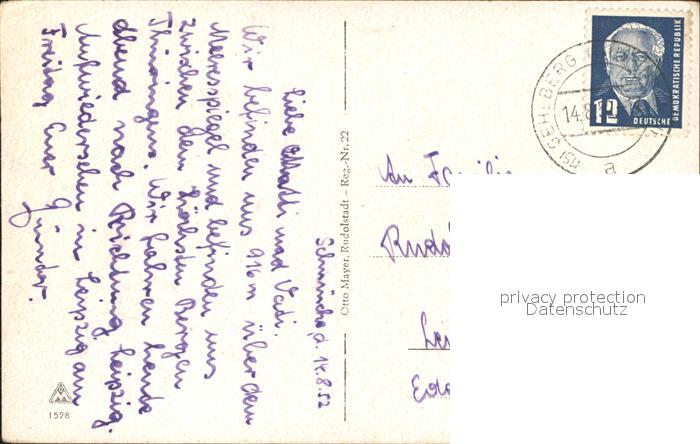 Schmücke, d. 14.8.52
Liebe Mutti und Vati.
Wir befinden uns 916 m über dem
Meeresspiegel und befinden uns
zwischen den höchsten Bergen
Thüringens. Wir fahren heute
abend nach Richtung Leipzig.
Aufwiedersehen in Leipzig am
Freitag Euer
Günter.
Otto Mayer, Rudolstadt – Reg.-Nr. 22
1598
GEHLBERG
14.8
a
12
DEUTSCHE
DEMOKRATISCHE REPUBLIK
An Familie
Rudo
Lei
privacy protection
Datenschutz